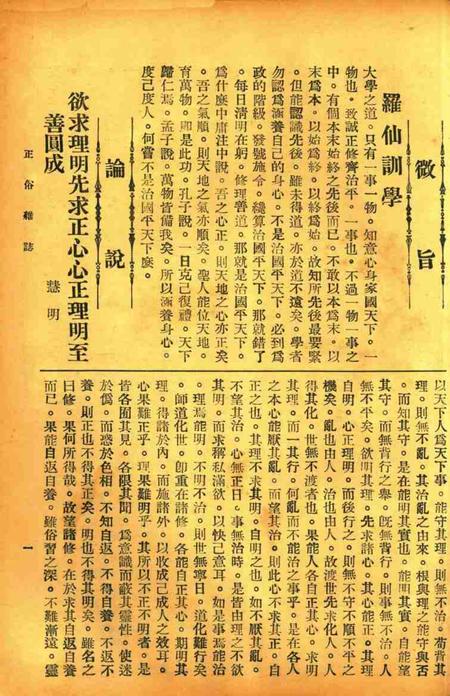 微旨
羅仙訓學
大學之道。只有一事一物。知意心身家國天下。一
物也。致誠正修齊治平。一事也。不過一物一事之
中。有個本末始終之先後而已。不敢以本為末。以
末為本。以始為終。以終為始。故知所先後最要緊
。但能認識先後。雖未得道。亦於道不遠矣。學者
勿認為涵養自己的身心。不是治國平天下。必到為
政的階級。發號施令。纔算治國平天下。那就錯了
。每日清明在躬。修理善道。那就是治國平天下。
為什麼中庸注中說。吾之心正。則天地之心亦正矣
。吾之氣順。則天地之氣亦順矣。聖人能位天地。
育萬物。即是此功。孔子說。一日克己復禮。天下
歸仁焉。孟子說。萬物皆備我矣。所以涵養身心。
度己度人。何嘗不是治國平天下麼。
論說
欲求理明先求正心心正理明至
善圓成
慧明
以天下人為天下事。能守其理。則無不治。茍背其
理。則無不亂。其治亂之由來。根與理之能守與否
。而知其守。是在能明其實也。能明其實。自能望
其守。而無背行之舉。既無背行。則事無不治。人
無不平矣。欲明其理。先求諸心。其心能正。其理
自明。心正理明。而後行之。則無不守不順不平之
機矣。亂也由人。治也由人。故渡世先求化人。人
得其化。世無不渡者也。果能人各自正其心。求明
其理。而一其行。何亂而不能治之事乎。是在各人
之本心能厭其亂。而望其治。則此心不求其正。自
正之也。其理不求其明。自明之也。如不厭其亂。
不望其治。心無正日。事無治時。是皆由理之不欲
其明。而求稱私滿欲。以快己意耳。如是事焉能治
。理焉能明。不明不治。則世無寧日。道化難行矣
。師道化世。卽重在諸修。各能自正其心。期明其
理。得諸於內。而施諸外。以收成己成人之效耳。
心果難正乎。理果難明乎。其所以不正不明者。是
皆各囿其見。各限其聞。為意識而蔽其靈性。使迷
於僞。而惑於色相。不知自返。不得自養。不返不
養。則正也不得其正矣。明也不得其明矣。雖名之
曰修。果何所得哉。故望諸修。在於求其自返自養
而已。果能自返自養。雖俗習之深。不難漸遠。靈
正俗雜誌
一